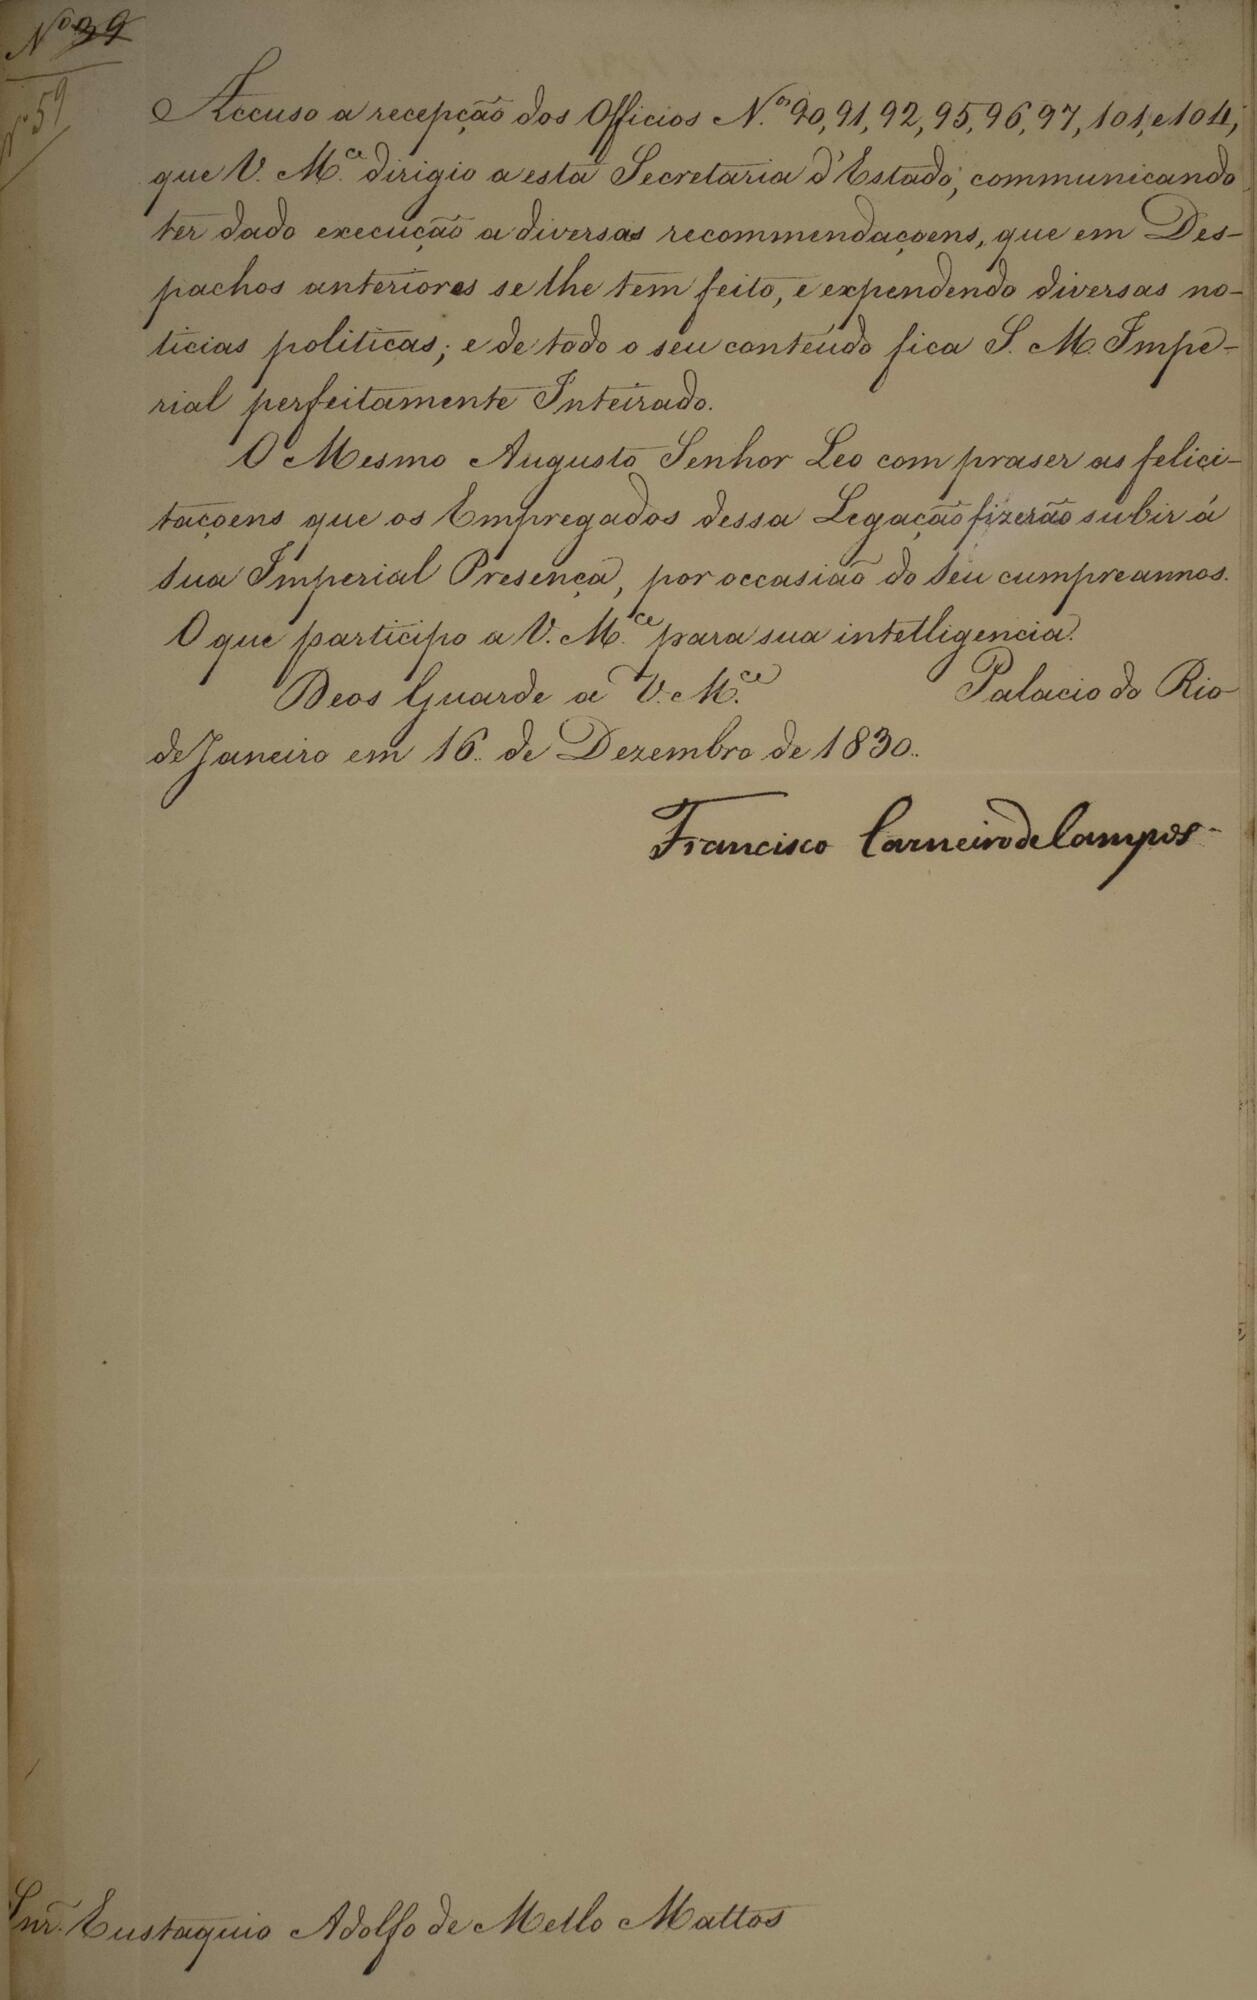 Nº 39
Nº 59
Accuso a recepção dos Officios N.os 90, 91, 92, 95, 96, 97, 101, e 104,
que V. M.ce dirigio a esta Secretaria d'Estado, communicando
ter dado execução a diversas recommendaçoens, que em Des-
pachos anteriores se lhe tem feito, e expendendo diversas no-
ticias politicas; e de todo o seu conteúdo fica S. M. Impe-
rial perfeitamente Inteirado.
O Mesmo Augusto Senhor Leo com praser as felici-
taçoens que os Empregados dessa Legação fizerão subir á
Sua Imperial Presença, por occasião do Seu cumpreannos.
O que participo a V. M.ce para sua intelligencia.
Deos Guarde a V. M.ce Palacio do Rio
de Janeiro em 16 de Dezembro de 1830.
Francisco Carneiro de Campos
Snr. Eustaquio Adolfo de Mello Mattos